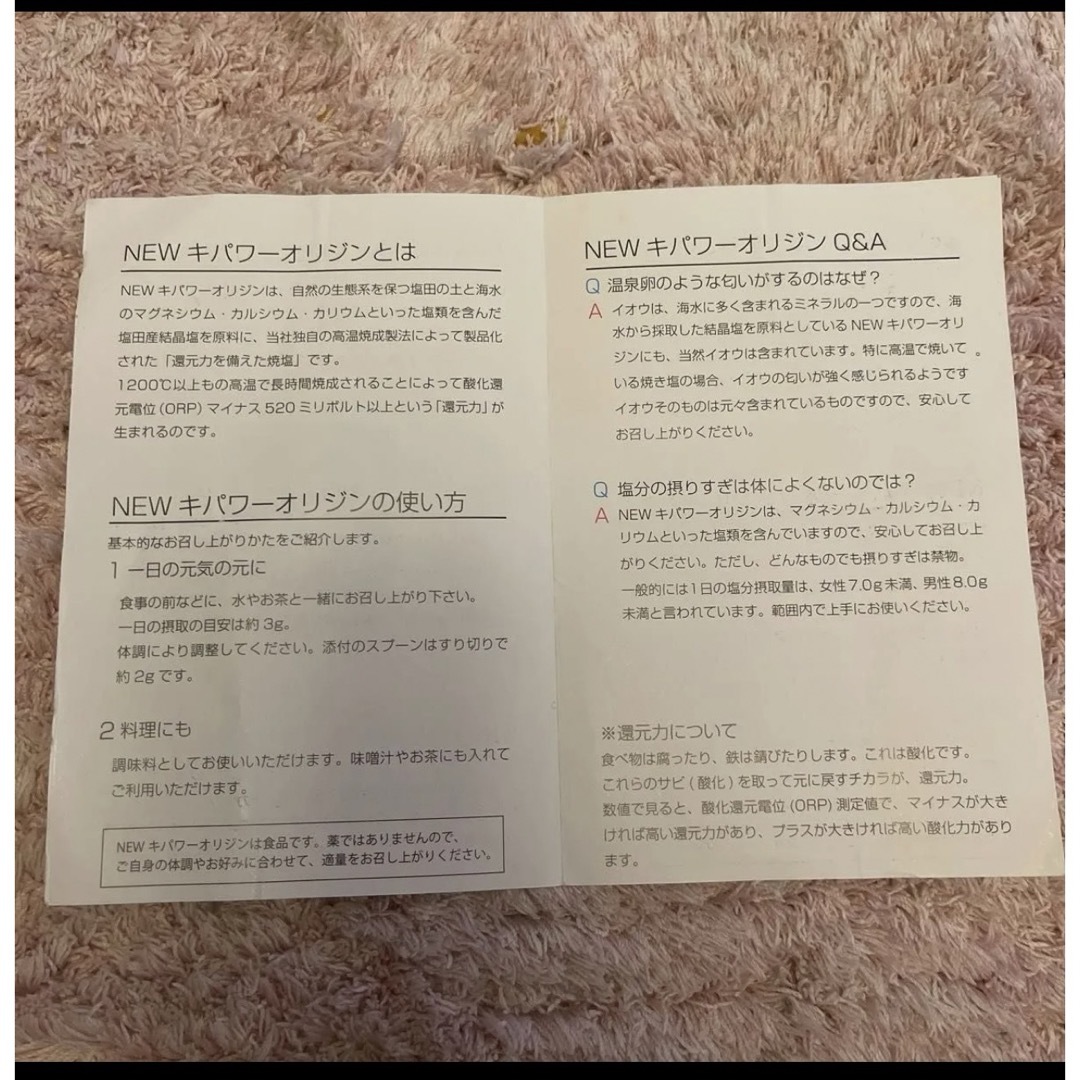 NEW キパワーオリジンとは
NEW キパワーオリジンは、自然の生態系を保つ塩田の土と海水
のマグネシウム・カルシウム・カリウムといった塩類を含んだ
塩田産結晶塩を原料に、当社独自の高温焼成製法によって製品化
された「還元力を備えた焼塩」です。
1200℃以上もの高温で長時間焼成されることによって酸化還
元電位(ORP)マイナス520ミリボルト以上という「還元力」が
生まれるのです。
NEW キパワーオリジンの使い方
基本的なお召し上がりかたをご紹介します。
1 一日の元気の元に
食事の前などに、水やお茶と一緒にお召し上がり下さい。
一日の摂取の目安は約3g。
体調により調整してください。添付のスプーンはすり切りで
約2gです。
2 料理にも
調味料としてお使いいただけます。味噌汁やお茶にも入れて
ご利用いただけます。
NEW キパワーオリジンは食品です。薬ではありませんので、
ご自身の体調やお好みに合わせて、適量をお召し上がりください。
NEW キパワーオリジン Q&A
Q 温泉卵のような匂いがするのはなぜ?
A イオウは、海水に多く含まれるミネラルの一つですので、海
水から採取した結晶塩を原料としているNEWキパワーオリ
ジンにも、当然イオウは含まれています。特に高温で焼いて
いる焼き塩の場合、イオウの匂いが強く感じられるようです。
イオウそのものは元々含まれているものですので、安心して
お召し上がりください。
Q 塩分の摂りすぎは体によくないのでは?
A NEWキパワーオリジンは、マグネシウム・カルシウム・カ
リウムといった塩類を含んでいますので、安心してお召し上
がりください。ただし、どんなものでも摂りすぎは禁物。
一般的には1日の塩分摂取量は、女性7.0g未満、男性8.0g
未満と言われています。範囲内で上手にお使いください。
※還元力について
食べ物は腐ったり、鉄は錆びたりします。これは酸化です。
これらのサビ(酸化)を取って元に戻すチカラが、還元力。
数値で見ると、酸化還元電位(ORP)測定値で、マイナスが大き
ければ高い還元力があり、プラスが大きければ高い酸化力があり
ます。